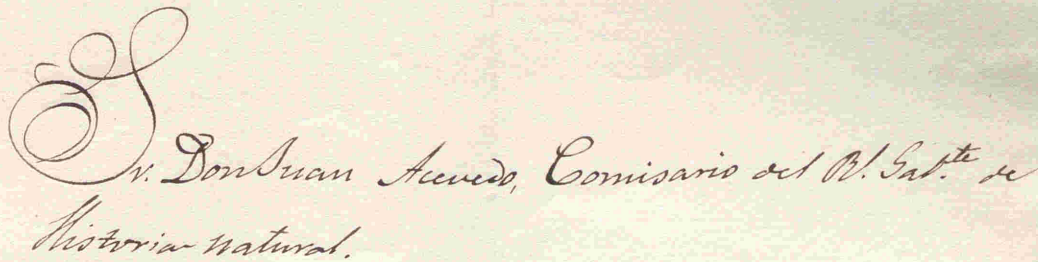 Sr. Don Juan Acevedo, Comisario del Rl. Gabte. de
Historia natural.